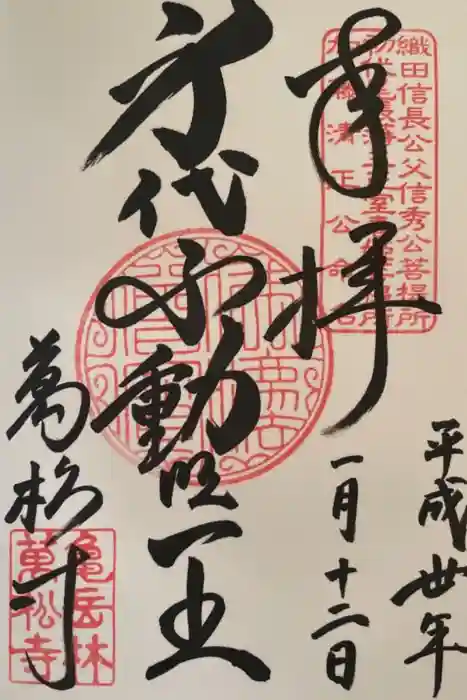 奉拝
平成丗年
一月十二日
身代不動明王
萬松寺
織田信長公父信秀公菩提所
亀岳林
萬松寺